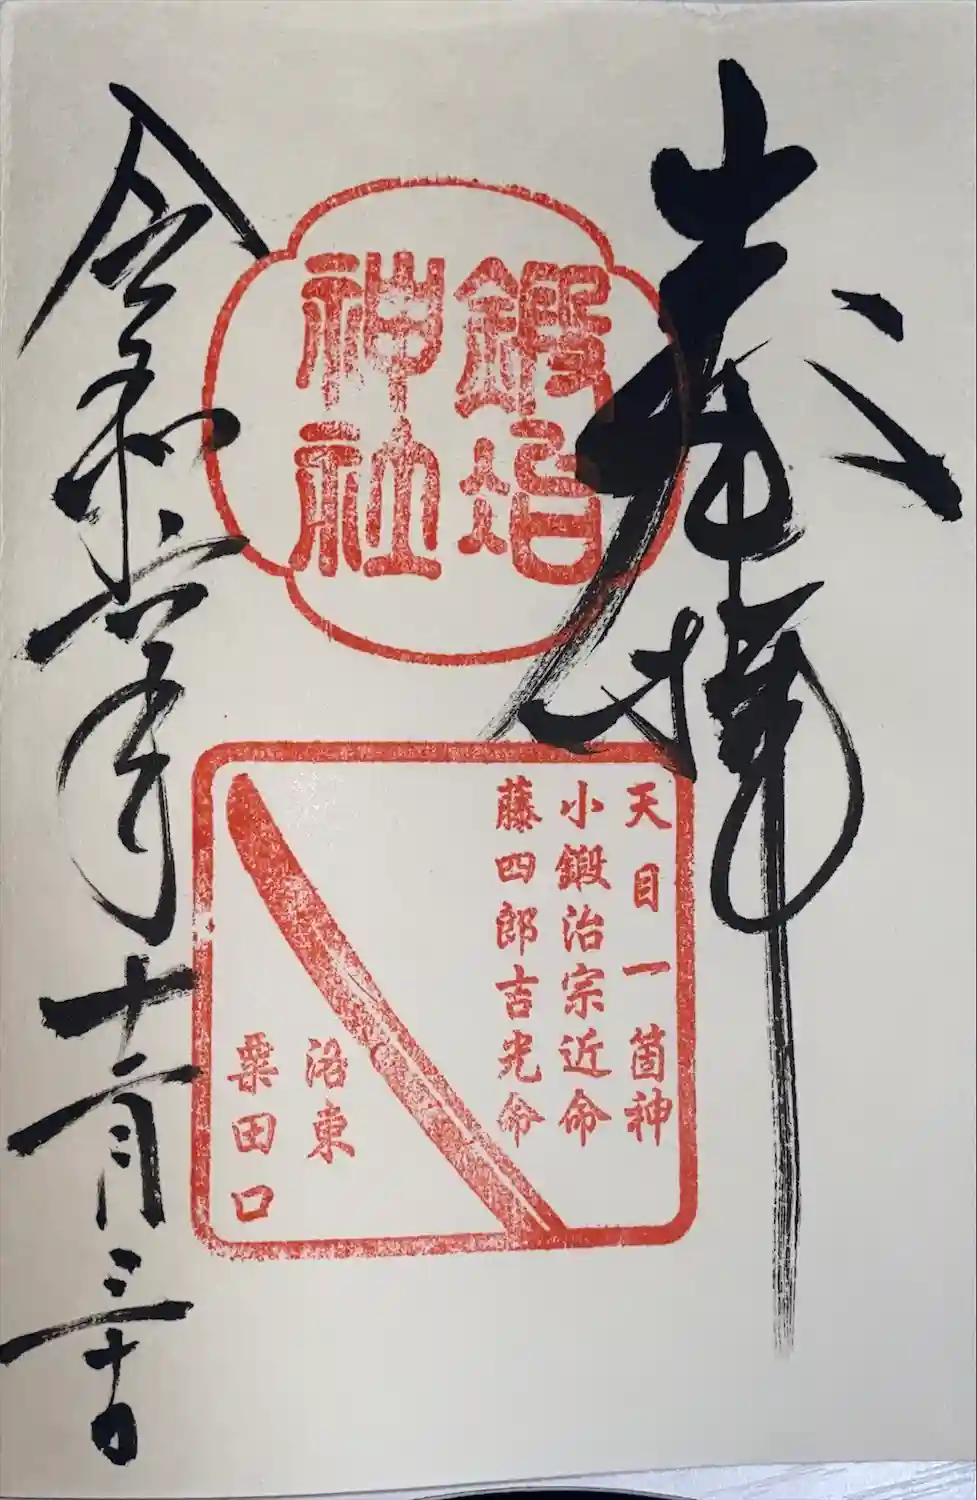 奉拝
鍛冶
神社
天目一箇神
小鍛治宗近命
藤四郎吉光命
洛東
粟田口
令和六年十一月三十日